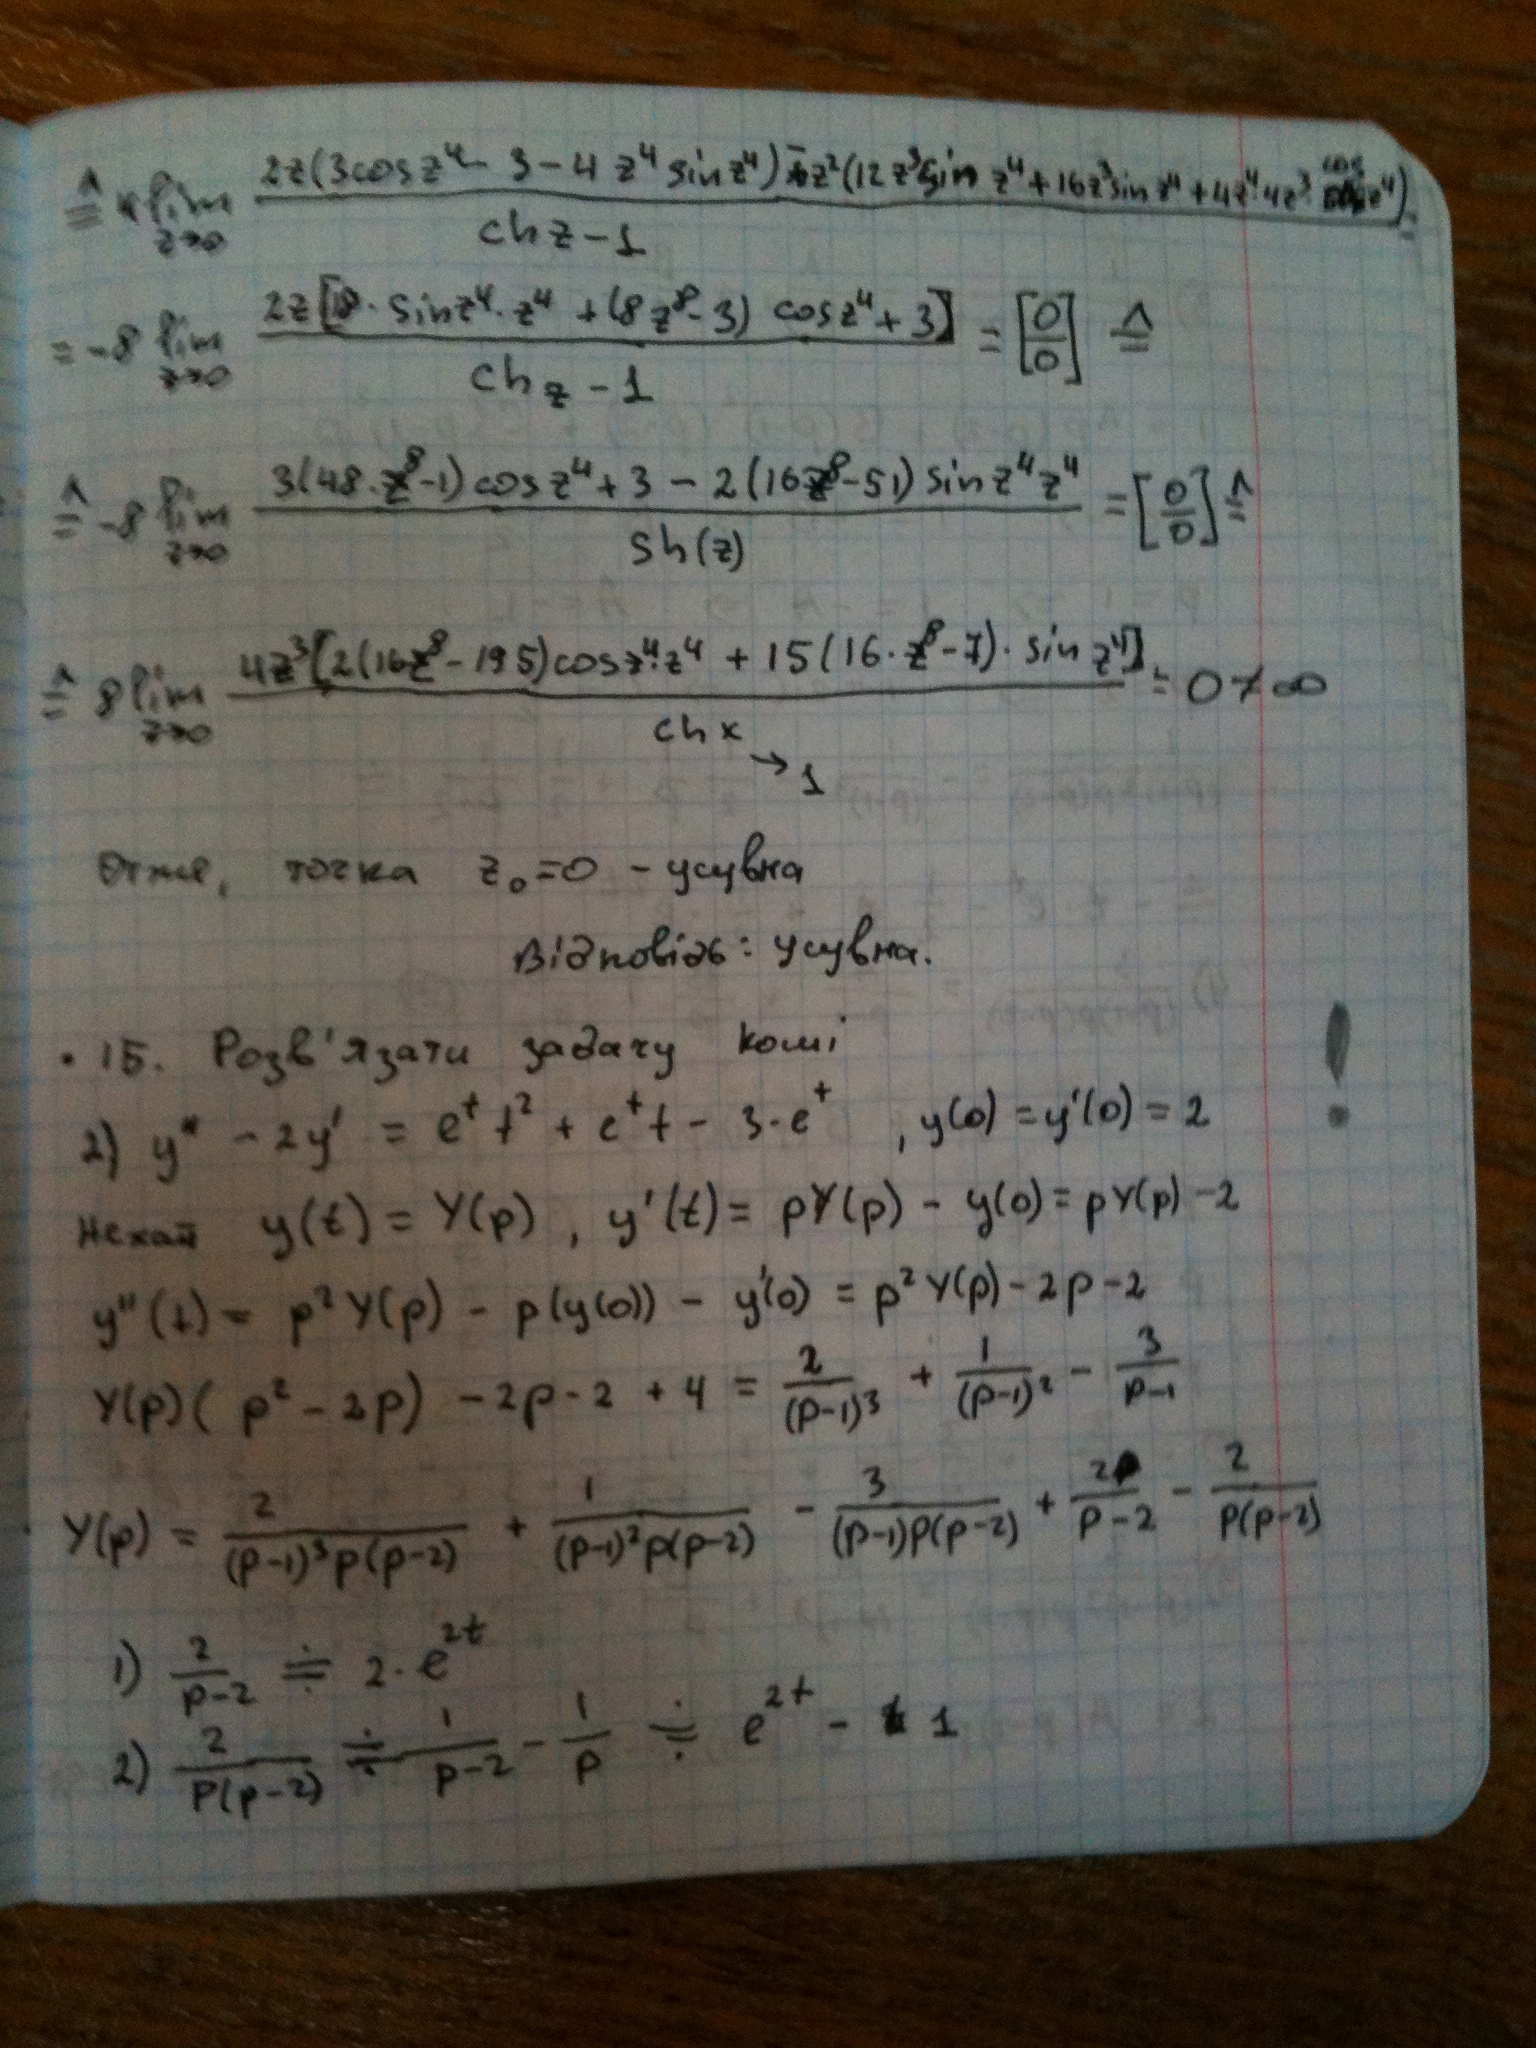 ≙ 4 lim z→0 (2z(3cosz⁴ - 3 - 4z⁴ sinz⁴) - z²(12z³sin z⁴ + 16z³sin z⁴ + 4z⁴·4z³·cos z⁴)) / (ch z - 1) =
= -8 lim z→0 (2z[18·sinz⁴·z⁴ + (8z⁸ - 3) cosz⁴ + 3]) / (ch z - 1) = [0/0] ≙
≙ -8 lim z→0 (3(48·z⁸ - 1) cosz⁴ + 3 - 2(16z⁸ - 51) sinz⁴z⁴) / sh(z) = [0/0] ≙
≙ 8 lim z→0 (4z³[2(16z⁸ - 195)cosz⁴·z⁴ + 15(16·z⁸ - 7)·sin z⁴]) / ch x = 0 ≠ ∞
→ 1
Отже, точка z₀=0 - усувна
Відповідь: усувна.
• 15. Розв'язати задачу Коші !
2) y'' - 2y' = eᵗt² + eᵗt - 3·eᵗ , y(0) = y'(0) = 2
Нехай y(t) = Y(p), y'(t) = pY(p) - y(0) = pY(p) - 2
y''(t) = p²Y(p) - p(y(0)) - y'(0) = p²Y(p) - 2p - 2
Y(p)(p² - 2p) - 2p - 2 + 4 = 2/(p-1)³ + 1/(p-1)² - 3/(p-1)
Y(p) = 2/((p-1)³p(p-2)) + 1/((p-1)²p(p-2)) - 3/((p-1)p(p-2)) + 2/(p-2) - 2/(p(p-2))
1) 2/(p-2) ≑ 2·e²ᵗ
2) 2/(p(p-2)) ≑ 1/(p-2) - 1/p ≑ e²ᵗ - 1